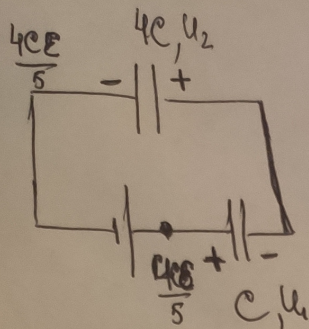 4CE
5
4C, U₂
- +
4CE
5
+ -
C, U₁